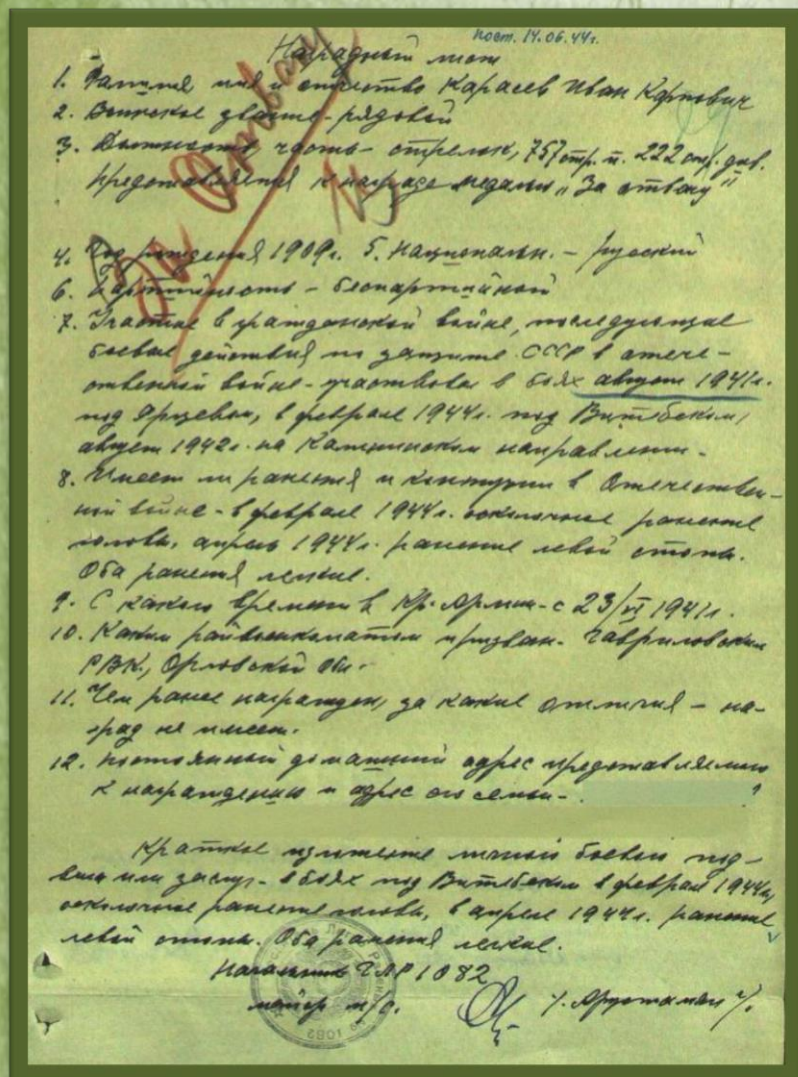 пост. 14.06.44г.
Наградной лист
За Отвагу
1. Фамилия имя и отчество Карасев Иван Карпович
2. Воинское звание - рядовой
3. Должность, часть - стрелок, 757 стр. п. 222 стр. див.
представляется к награде медалью „За отвагу"
4. Год рождения 1909г. 5. Национальн. - русский
6. Партийность - беспартийный
7. Участие в гражданской войне, последующие
боевые действия по защите СССР в отече-
ственной войне - участвовал в боях август 1941г.
под Ярцевом, в феврале 1944г. под Витебском,
август 1942г. на направлении.
8. Имеет ли ранения и контузии в Отечествен-
ной войне - в феврале 1944г. осколочное ранение
головы, апрель 1944г. ранение левой стопы.
Оба ранения легкие.
9. С какого времени в Кр. Армии - с 23/VI 1941г.
10. Каким райвоенкоматом призван - Гавриловским
РВК, Орловской обл.
11. Чем ранее награжден, за какие отличия - на-
град не имеет.
12. Постоянный домашний адрес представляемого
к награждению и адрес его семьи -
Краткое изложение личного боевого под-
вига или заслуг - в боях под Витебском в феврале 1944г.
осколочное ранение головы, в апреле 1944г. ранение
левой стопы. Оба ранения легкие.
Начальник ГЛР 1082
майор м/с. /Арустамян/.